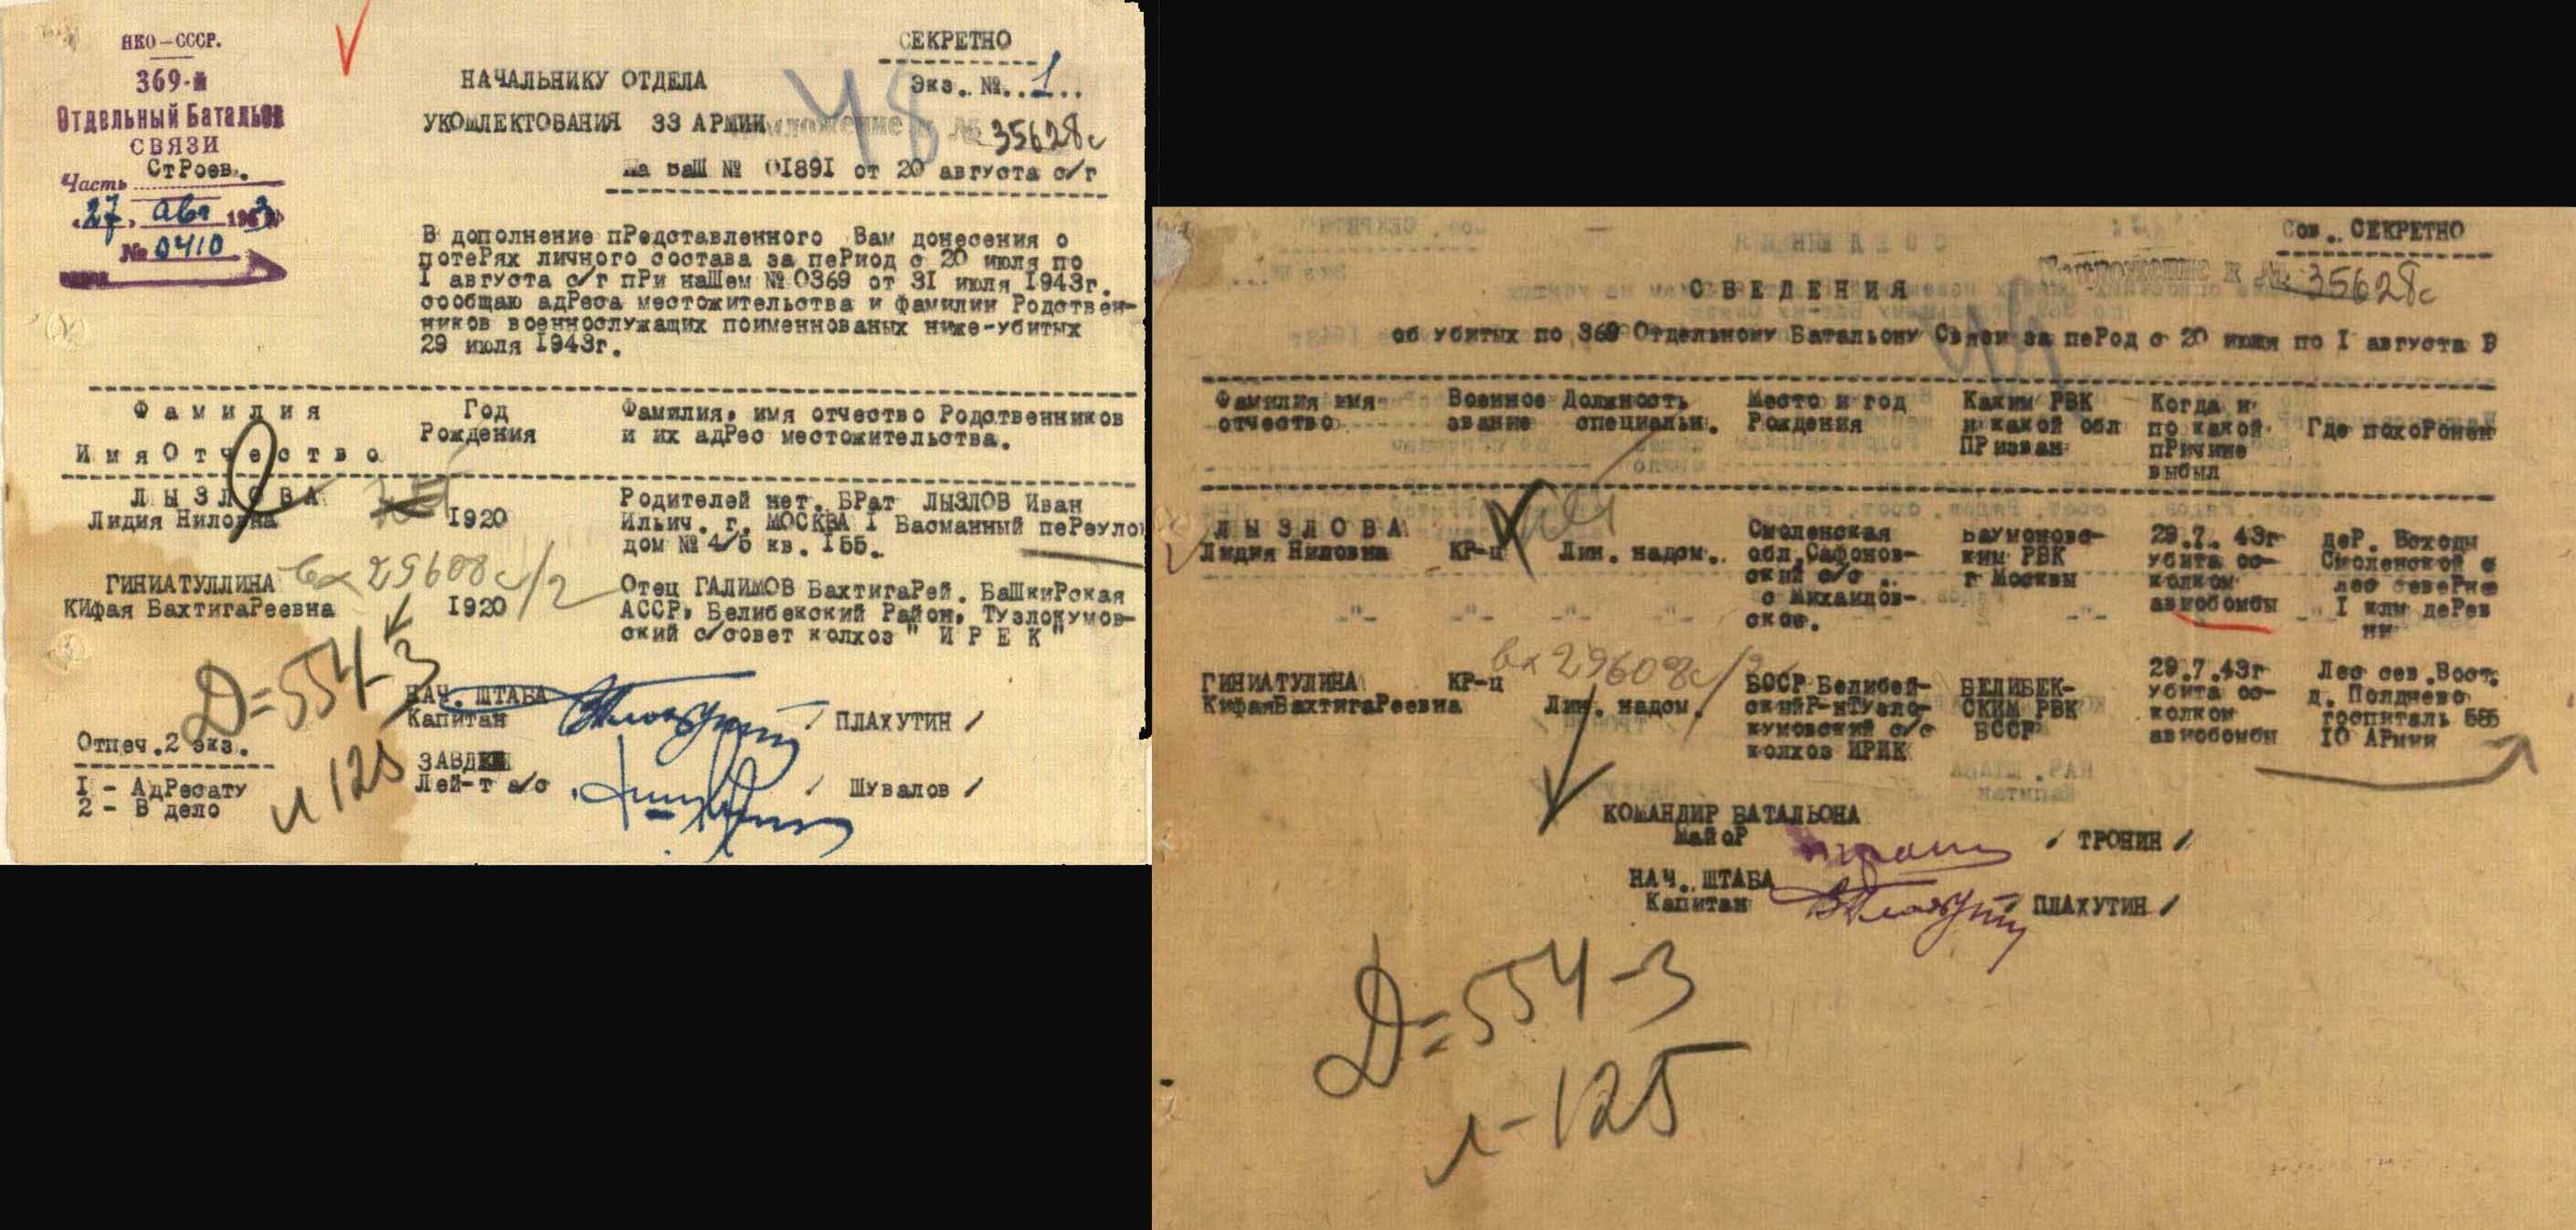 НКО-СССР.
369-й
Отдельный Батальон
СВЯЗИ
Часть СтРоев.
27. Авг 1943
№ 0410
СЕКРЕТНО
Экз. №..1..
НАЧАЛЬНИКУ ОТДЕЛА
УКОМЛЕКТОВАНИЯ 33 АРМИИ
48
Приложение к № 35628с
На ваШ № 01891 от 20 августа с/г
В дополнение пРедставленного Вам донесения о
потеРях личного состава за пеРиод с 20 июля по
I августа с/г пРи наШем № 0369 от 31 июля 1943г.
сообщаю адРеса местожительства и фамилии Родствен-
ников военнослужащих поименнованых ниже-убитых
29 июля 1943г.
Фамилия
ИмяОтчество
Год
Рождения
Фамилия, имя отчество Родственников
и их адРес местожительства.
ЛЫЗЛОВА
Лидия Ниловна
1920
Родителей нет. БРат ЛЫЗЛОВ Иван
Ильич. г. МОСКВА I Басманный пеРеуло
дом № 4/5 кв. 155.
вх 29608с/2
ГИНИАТУЛЛИНА
КИфая БахтигаРеевна
1920
Отец ГАЛИМОВ БахтигаРей. БаШкиРская
АССР, Белибекский Район, Тузлокумов-
ский с/совет колхоз " И Р Е К "
Д=554-3
л 125
НАЧ. ШТАБА
Капитан / ПЛАХУТИН /
ЗАВДЕЛ
Лей-т а/с / Шувалов /
Отпеч.2 экз.
I - АдРесату
2 - В дело
Сов.. СЕКРЕТНО
Приложение к № 35628с
СВЕДЕНИЯ
об убитых по 369 Отдельному Батальону Связи за пеРод с 20 июля по I августа В
Фамилия имя
отчество
Военное
звание
Должность
специальн.
Место и год
Рождения
Каким РВК
и какой обл
ПРизван
Когда и
по какой
пРичине
выбыл
Где похоРонен
ЛЫЗЛОВА
Лидия Ниловна
КР-ц
Лин. надсм.
Смоленская
обл.Сафонов-
ский с/с
с Михайлов-
ское.
Баумоновс-
ким РВК
г Москвы
29.7. 43г
убита ос-
колком
авиобомбы
деР. Воходы
Смоленской о
лес севеРне
I клм деРев
ни
вх 29608с/2
ГИНИАТУЛИНА
КифаяБахтигаРеевна
КР-ц
Лин. надсм.
БССР Белибей-
скийР-нТузло-
кумовский с/с
колхоз ИРИК
БЕЛИБЕК-
СКИМ РВК
БССР
29.7.43г
убита ос-
колком
авиобомбы
Лес сев.Вост.
д. Полднево
госпиталь 585
10 АРмии
КОМАНДИР БАТАЛЬОНА
МайоР / ТРОНИН /
НАЧ. ШТАБА
Капитан / ПЛАХУТИН /
Д=554-3
л-125